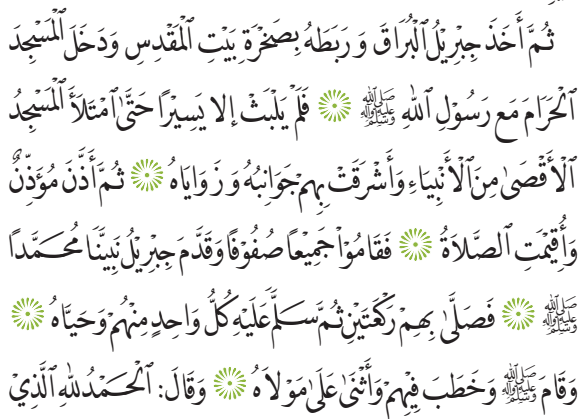 ثُمَّ أَخَذَ جِبْرِيْلُ ٱلْبُرَاقَ وَرَبَطَهُ بِصَخْرَةِ بَيْتِ ٱلْمَقْدِسِ وَدَخَلَ ٱلْمَسْجِدَ
ٱلْحَرَامَ مَع رَسُوْلِ ٱللهِ ﷺ ۞ فَلَمْ يَلْبَثْ إلا يَسِيْرًا حَتَّى ٱمْتَلَأَ ٱلْمَسْجِدُ
ٱلْأَقْصَىٰ مِنَ ٱلْأَنْبِيَاءِ وَأَشْرَقَتْ بِهِمْ جَوَانِبُهُ وَزَوَايَاهُ ۞ ثُمَّ أَذَّنَ مُؤَذِّنٌ
وَأُقِيْمَتِ ٱلصَّلاَةُ ۞ فَقَامُوْا جَمِيْعًا صُفُوْفًا وَقَدَّمَ جِبْرِيْلُ نَبِيَّنَا مُحَمَّدًا
ﷺ ۞ فَصَلَّىٰ بِهِمْ رَكْعَتَيْنِ ثُمَّ سَلَّمَ عَلَيْهِ كُلُّ وَاحِدٍ مِنْهُمْ وَحَيَّاهُ ۞
وَقَام ﷺ وَخَطَبَ فِيْهِمْ وَأَثْنَىٰ عَلَىٰ مَوْلَاهُ ۞ وَقَالَ: ٱلْحَمْدُ لِلهِ ٱلَّذِيْ